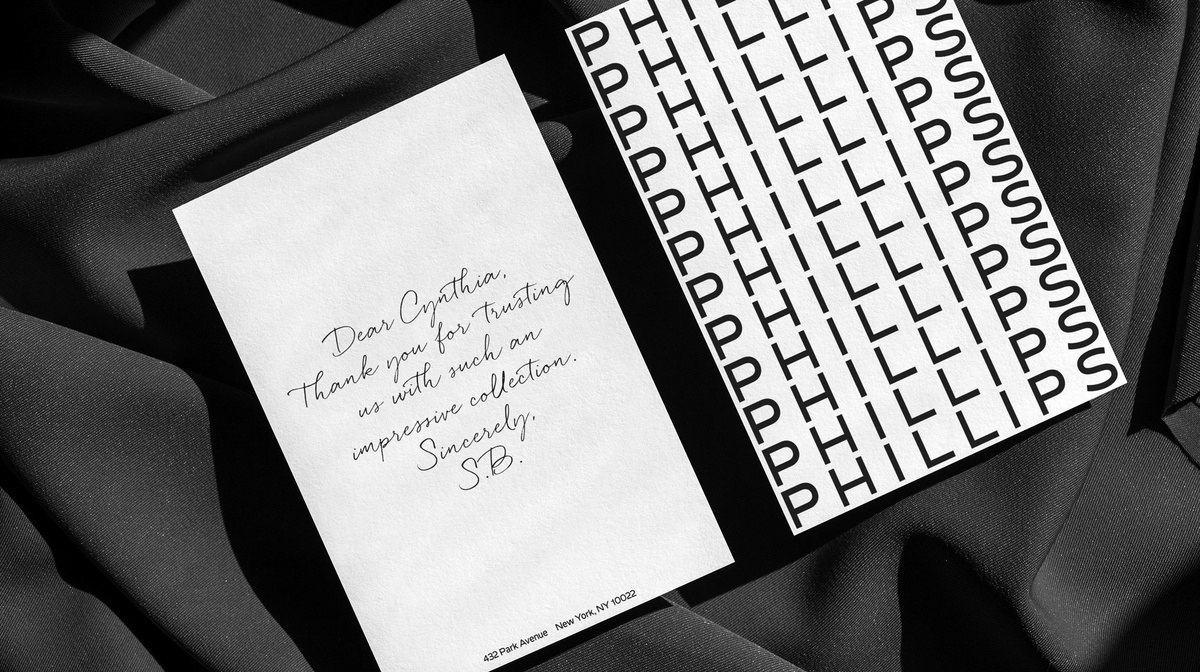 Dear Cynthia,
Thank you for trusting
us with such an
impressive collection.
Sincerely,
S.B.
432 Park Avenue New York, NY 10022
PHI
PHILL
PHILLIPS
PHILLIPS
PHILLIPS
PHILLIPS
PHILLIPS
PHILLIPS
PHILLIPS
PHILLIPS
PHILLIPS
PHILLIPS